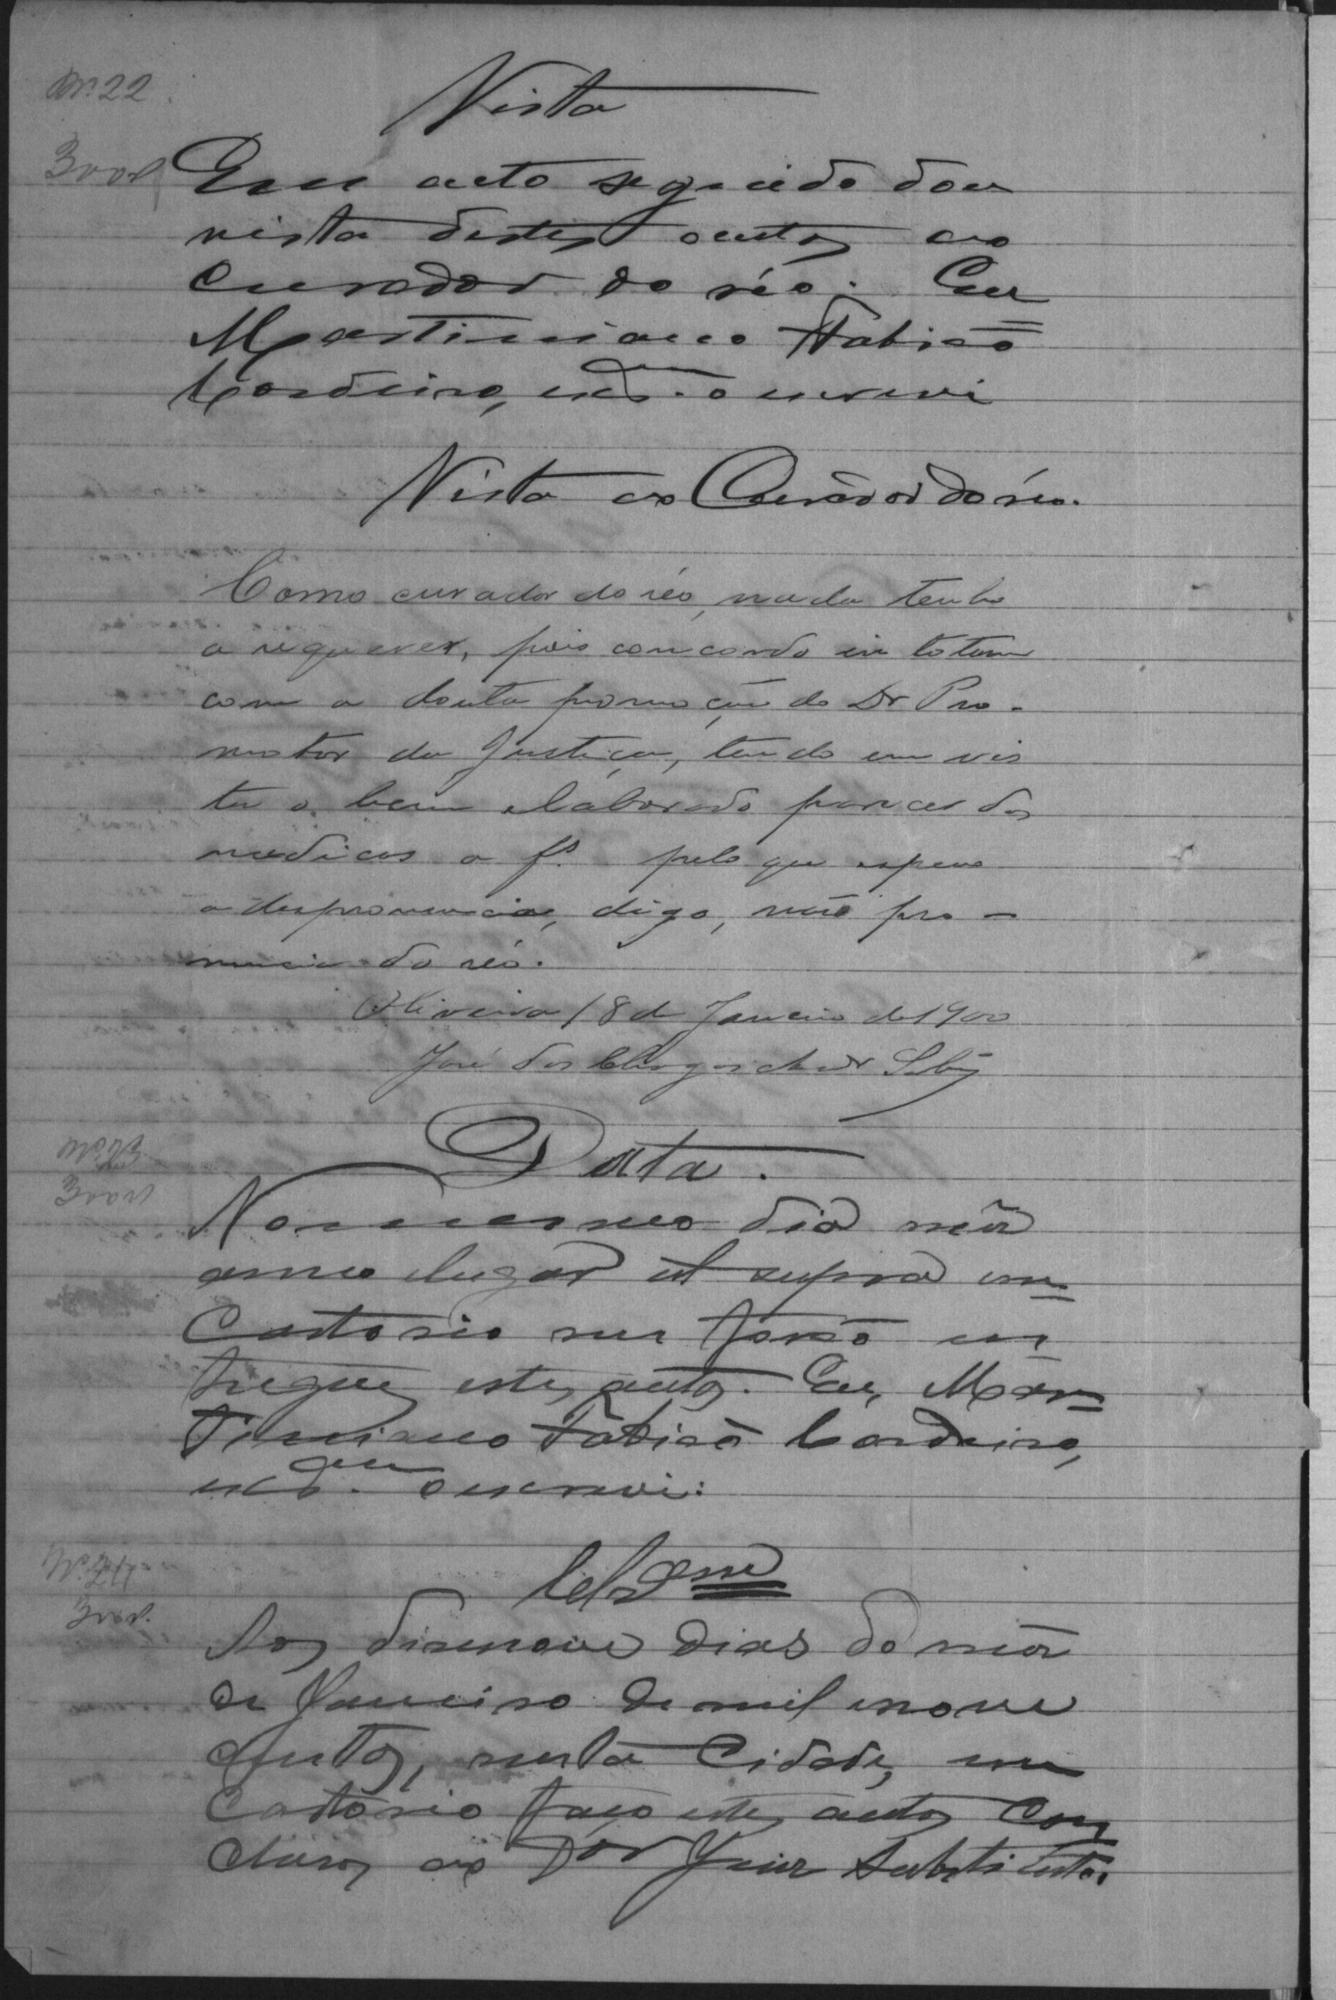 Nº 22
Vista
300 rs
Em acto seguido dou
vista destes autos ao
Curador do réo. Eu
Martiniano Fabião
Cordeiro, escrᵃᵐ o escrevi
Vista ao Curador do réo.
Como curador do réo, nada tenho
a requerer, pois concordo in totum
com a douta promoção do Dr Pro-
motor da Justiça, tendo em vis
ta o bem elaborado parecer dos
medicos a fˢ pelo que espero
a despronuncia, digo, não pro-
nuncia do réo.
Oliveira 18 de Janeiro de 1900
José das Chagas
Data.
No mesmo dia mês
anno lugar ut supra em
Cartorio me forão en
tregues estes autos. Eu, Mar
tiniano Fabião Cordeiro,
o escrevi:
Nº 24
300 rs.
Clsᵃᵐ
Aos disenove dias do mês
de Janeiro de mil e nove
centos, nesta Cidade, em
Cartorio faço estes autos Con
clusos ao Dor Juiz Substituto.